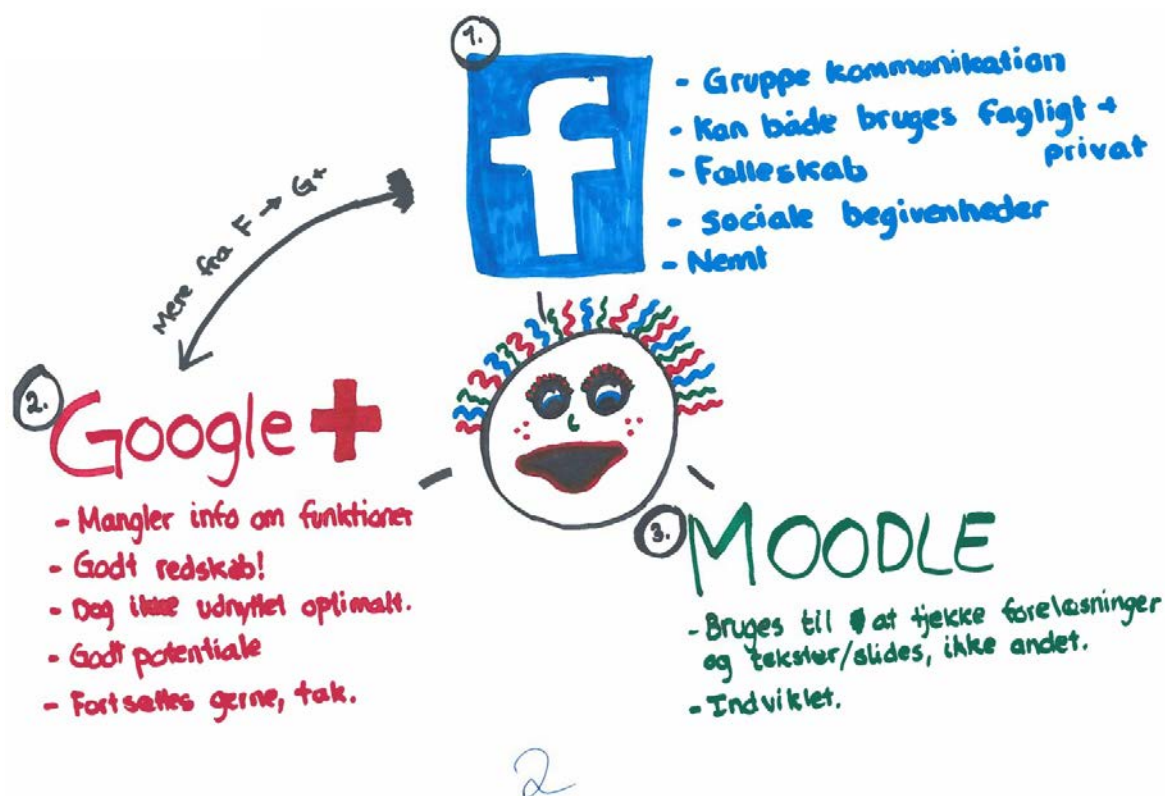 1.
f
- Gruppe kommunikation
- Kan både bruges fagligt +
privat
- Fælleskab
- Sociale begivenheder
- Nemt
Mere fra F → G+
2.
Google +
- Mangler info om funktioner
- Godt redskab!
- Dog ikke udnyttet optimalt.
- Godt potentiale
- Fortsættes gerne, tak.
3.
MOODLE
- Bruges til at tjekke forelæsninger
og tekster/slides, ikke andet.
- Indviklet.
2